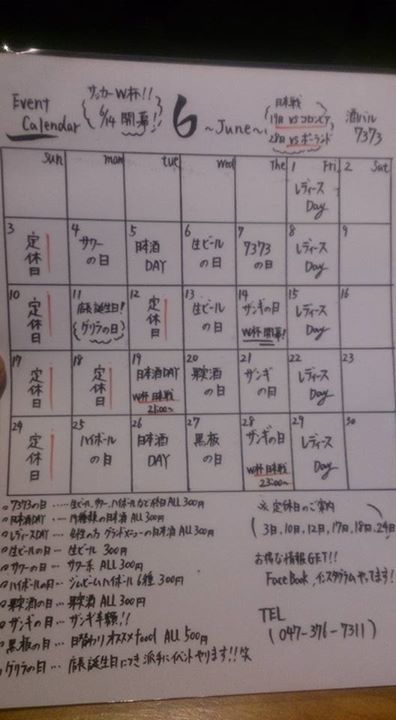 Event
Calendar
サッカーW杯!!
6/14 開幕!
6
~June~
日本戦
19日 vs コロンビア
28日 vs ポーランド
酒バル
7373
Sun mon tue Wed The Fri Sat
1 レディース Day
2
3 定休日
4 サワーの日
5 日本酒 DAY
6 生ビールの日
7 7373の日
8 レディース Day
9
10 定休日
11 店長誕生日! グリラの日
12 定休日
13 生ビールの日
14 ザンギの日 W杯 開幕!
15 レディース Day
16
17 定休日
18 定休日
19 日本酒DAY W杯 日本戦 21:00~
20 果実酒の日
21 ザンギの日
22 レディース Day
23
24 定休日
25 ハイボールの日
26 日本酒 DAY
27 黒板の日
28 ザンギの日 W杯 日本戦 23:00~
29 レディース Day
30
・7373の日 … 生ビール、サワー、ハイボールなど終日 ALL 300円
・日本酒DAY … の日本酒 ALL 300円
・レディースDAY … 女性の方 グランドメニューの日本酒 ALL 300円
・生ビールの日 … 生ビール 300円
・サワーの日 … サワー系 ALL 300円
・ハイボールの日 … ジムビームハイボール 6種 300円
・果実酒の日 … 果実酒 ALL 300円
・ザンギの日 … ザンギ半額!!
・黒板の日 … 日替わりオススメfood ALL 500円
・グリラの日 … 店長誕生日につき派手にイベントやります!!笑
※ 定休日のご案内
(3日,10日,12日,17日,18日,24日)
お得な情報GET!!
FaceBook,インスタグラムやってます!
TEL
(047-376-7311)